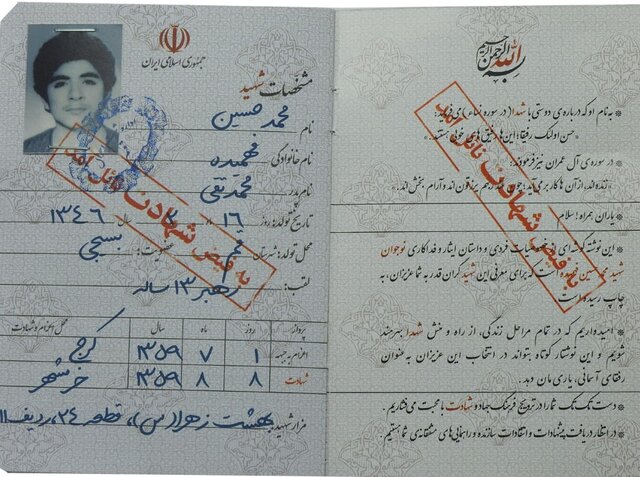 جمهوری اسلامی ایران
مشخصات شهید
نام محمد حسین
نام خانوادگی فهمیده
نام پدر محمدتقی
تاریخ تولد: روز ۱۶ ماه ۲ سال ۱۳۴۶
محل تولد: شهرستان قم عضویت: بسیجی
لقب: رهبر ۱۳ ساله
پرواز روز ماه سال محل اعزام و شهادت
اعزام به جبهه ۱ ۷ ۱۳۵۹ کرج
شهادت ۸ ۸ ۱۳۵۹ خرمشهر
مزار شهید بهشت زهرا(س)، قطعه ۲۴، ردیف ۱۱
به فیض شهادت نائل آمد
بسم الله الرحمن الرحیم
- به نام او که درباره‌ی دوستی با شهدا (در سوره نساء)
«حسن اولئک رفیقا: این‌ها رفیق‌های خوبی هستند.»
در سوره‌ی آل عمران نیز فرمودند:
«زنده‌اند، از آن‌ها کار بر می‌آید، چون عند ربهم یرزقون اند و آرام بخش اند.»
- یاران همراه! سلام
- این نوشته گوشه‌ای از خصوصیات فردی و داستان ایثار و فداکاری نوجوان
شهید محمد حسین فهمیده است که برای معرفی این شهید گران قدر به شما عزیزان، به
چاپ رسیده است.
- امیدواریم که در تمام مراحل زندگی، از راه و منش شهدا بهره‌مند
شویم و این نوشتار کوتاه بتواند در انتخاب این عزیزان به عنوان
رفقای آسمانی، یاری مان دهد.
- دست تک تک شما را در ترویج فرهنگ جهاد و شهادت با محبت می‌فشاریم.
- در انتظار دریافت پیشنهادات و انتقادات سازنده و راهنمایی های مشفقانه‌ی شما هستیم.
به فیض شهادت نائل آمد